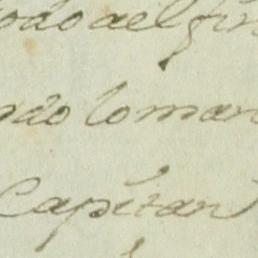 todo del fin
ndo loman
Capitan